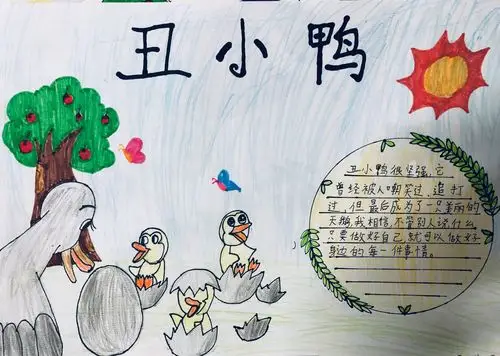 丑小鸭
丑小鸭很坚强，它
曾经被人嘲笑过，追打
过，但最后成为了一只美丽的
天鹅，我相信，不管别人说什么，
只要做好自己，就可以做好
身边的每一件事情。